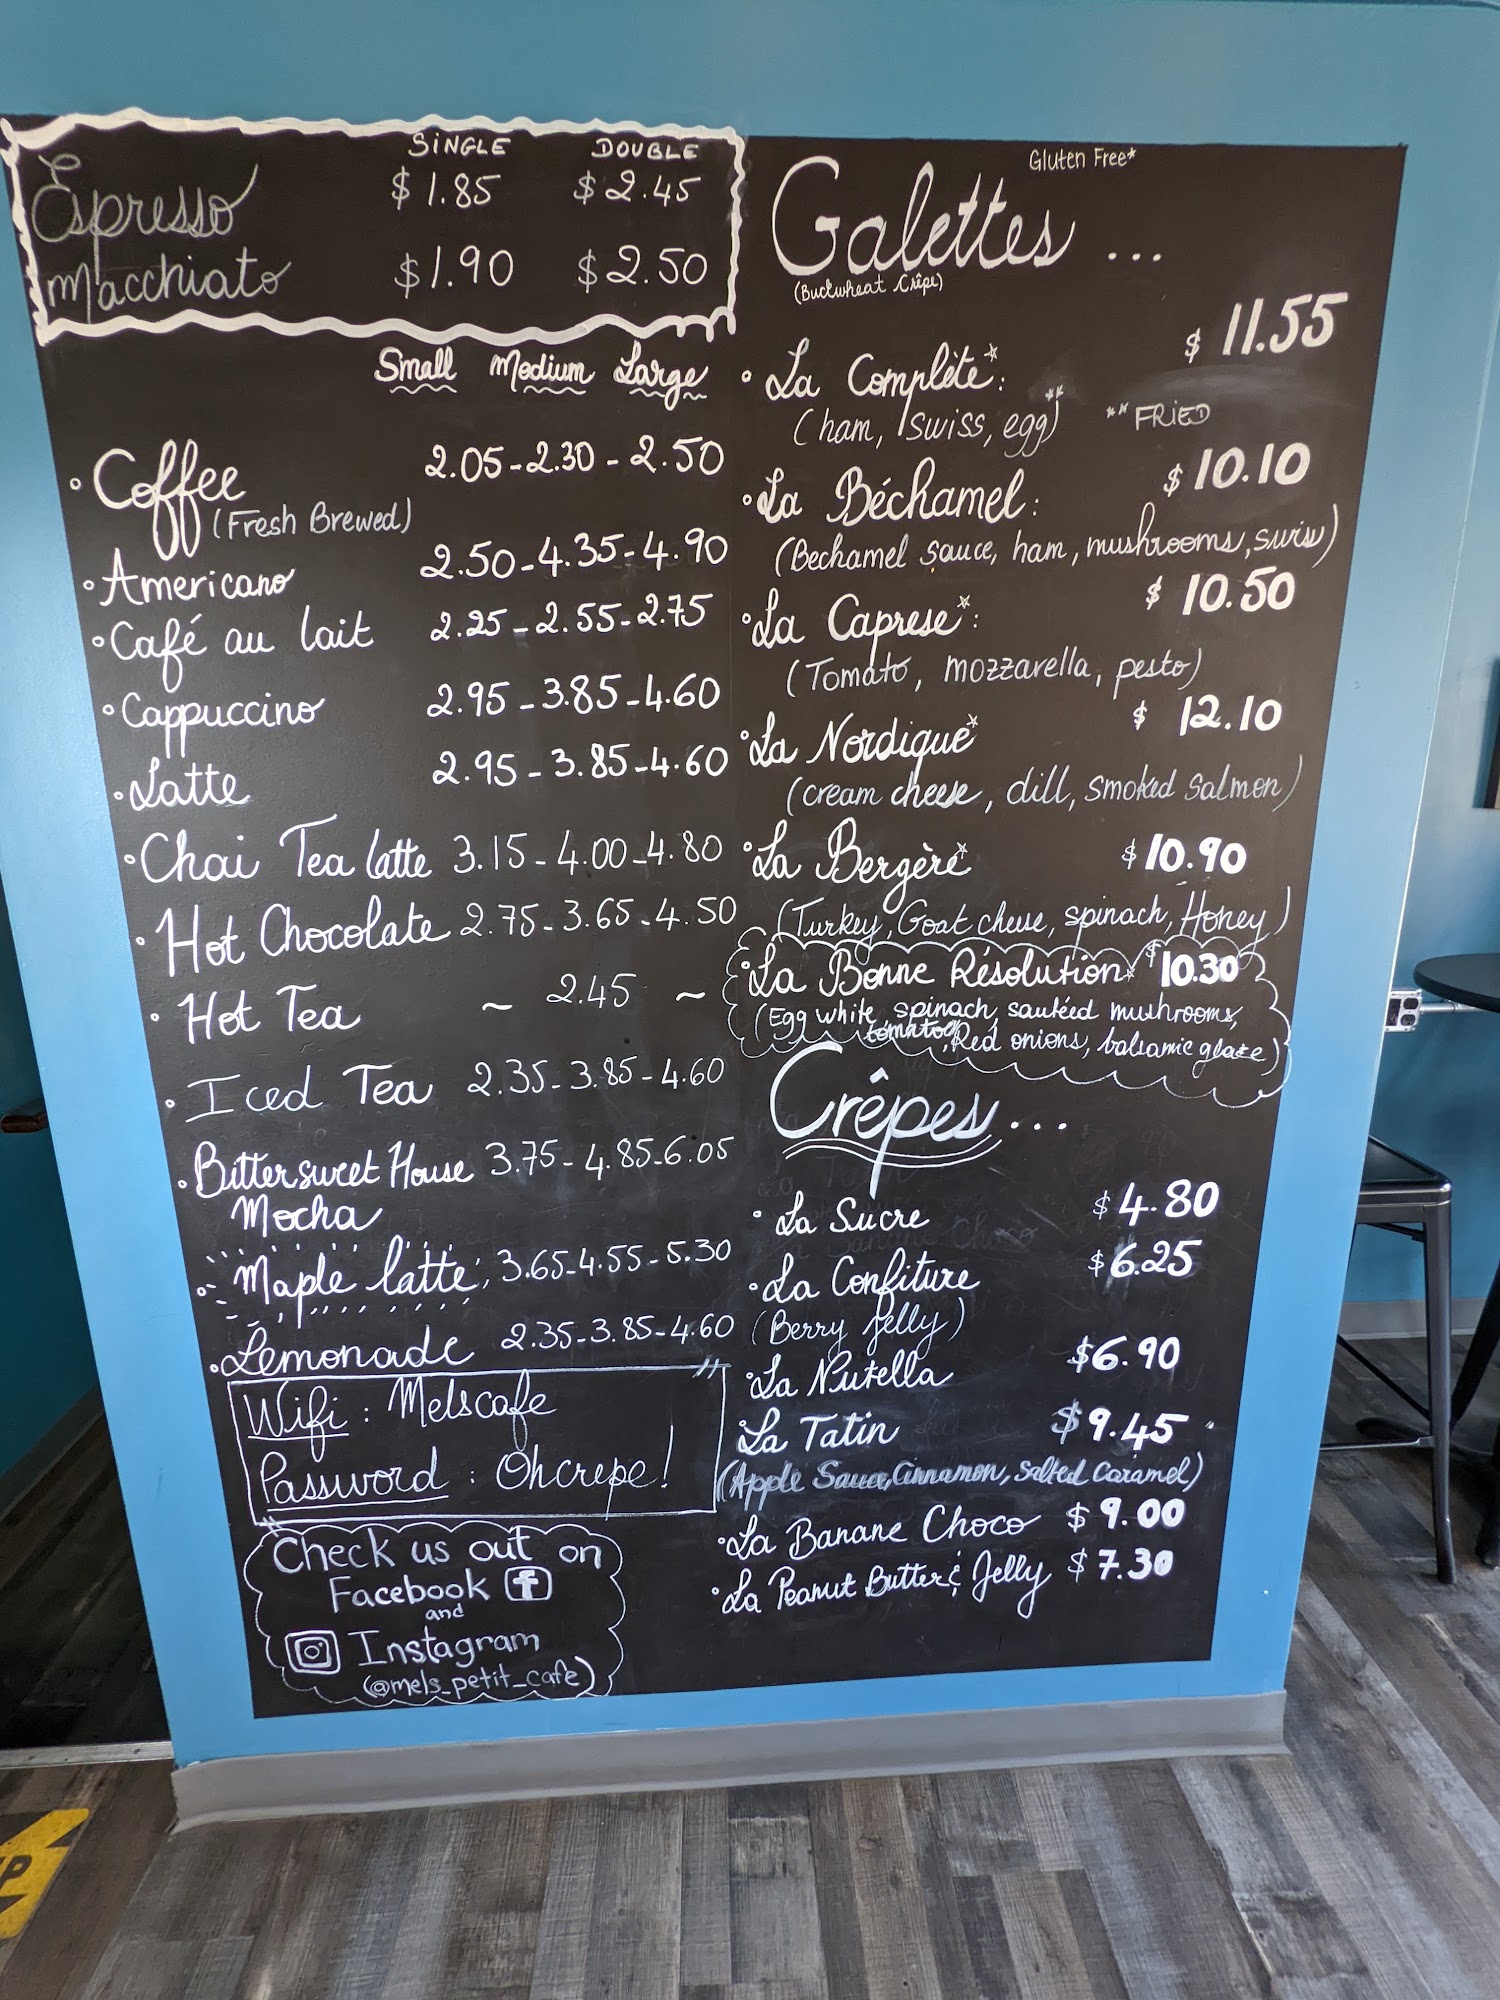 SINGLE DOUBLE
Espresso $1.85 $2.45
Macchiato $1.90 $2.50
Small Medium Large
Coffee 2.05-2.30-2.50
(Fresh Brewed)
Americano 2.50-4.35-4.90
Café au lait 2.25-2.55-2.75
Cappuccino 2.95-3.85-4.60
Latte 2.95-3.85-4.60
Chai Tea latte 3.15-4.00-4.80
Hot Chocolate 2.75-3.65-4.50
Hot Tea ~ 2.45 ~
Iced Tea 2.35-3.85-4.60
Bittersweet House 3.75-4.85-6.05
Mocha
Maple latte 3.65-4.55-5.30
Lemonade 2.35-3.85-4.60
Wifi : Melscafe
Password : Ohcrepe!
Check us out on
Facebook
and
Instagram
(@mels_petit_cafe)
Gluten Free*
Galettes ...
(Buckwheat Crêpe)
$ 11.55
La Complète*:
(ham, swiss, egg**) **FRIED
$ 10.10
La Béchamel:
(Bechamel sauce, ham, mushrooms, swiss)
$ 10.50
La Caprese*:
(Tomato, mozzarella, pesto)
$ 12.10
La Nordique*
(cream cheese, dill, smoked salmon)
La Bergère* $10.90
(Turkey, Goat cheese, spinach, Honey)
La Bonne Résolution* $10.30
(Egg white, spinach, sautéed mushrooms,
tomatoes, Red onions, balsamic glaze)
Crêpes...
La Sucre $4.80
La Confiture $6.25
(Berry Jelly)
La Nutella $6.90
La Tatin $9.45
(Apple Sauce, Cinnamon, Salted Caramel)
La Banane Choco $9.00
La Peanut Butter & Jelly $7.30